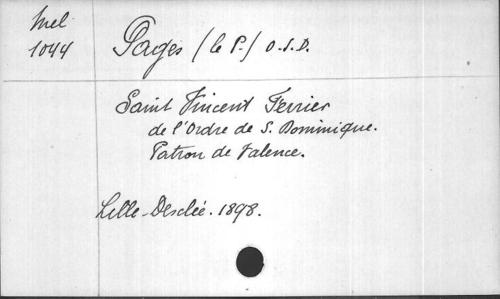 Mel
1044
Pagès (le P.) O.S.D.
Saint Vincent Ferrier
de l'Ordre de S. Dominique.
Patron de Valence.
Lille-Desclée. 1898.